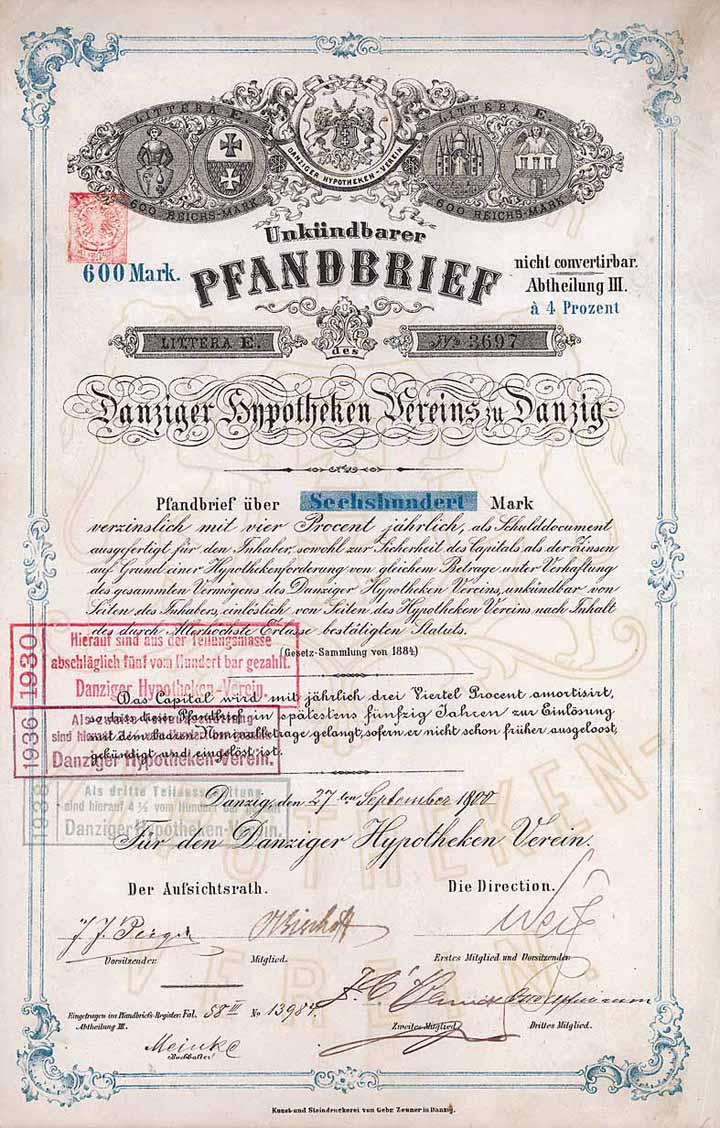 LITTERA E.
600 REICHS-MARK
DANZIGER HYPOTHEKEN-VEREIN
LITTERA E.
600 REICHS-MARK
Unkündbarer
600 Mark.
PFANDBRIEF
nicht convertirbar.
Abtheilung III.
à 4 Prozent
LITTERA E.
des
No 3697
Danziger Hypotheken Vereins zu Danzig
Pfandbrief über Sechshundert Mark
verzinslich mit vier Procent jährlich, als Schulddocument
ausgefertigt für den Inhaber, sowohl zur Sicherheit des Capitals als der Zinsen
auf Grund einer Hypothekenforderung von gleichem Betrage unter Verhaftung
des gesammten Vermögens des Danziger Hypotheken Vereins, unkündbar von
Seiten des Inhabers, einlöslich von Seiten des Hypotheken Vereins nach Inhalt
des durch Allerhöchste Erlasse bestätigten Statuts.
(Gesetz-Sammlung von 1884)
1930
Hierauf sind aus der Teilungsmasse
abschläglich fünf vom Hundert bar gezahlt.
Danziger Hypotheken-Verein.
Das Capital wird mit jährlich drei Viertel Procent amortisirt,
so dass dieser Pfandbrief in spätestens fünfzig Jahren zur Einlösung
mit dem baaren Nominalbetrage gelangt, sofern er nicht schon früher ausgeloost,
gekündigt und eingelöst ist.
1936
Als
sind hierauf
Danziger Hypotheken-Verein.
1938
Als dritte Teilausschüttung
sind hierauf 4½ vom Hundert bar gezahlt
Danziger Hypotheken-Verein.
Danzig, den 27ten September 1900
Für den Danziger Hypotheken Verein.
Der Aufsichtsrath.
Die Direction.
Vorsitzender
Mitglied.
Erstes Mitglied und Vorsitzender.
Eingetragen im Pfandbriefs-Register: Fol. 58 III No 13984.
Abtheilung III.
Zweites Mitglied
Drittes Mitglied.
Meinke
Buchhalter
HYPOTHEKEN-
VEREIN.
Kunst- und Steindruckerei von Gebr. Zeuner in Danzig.